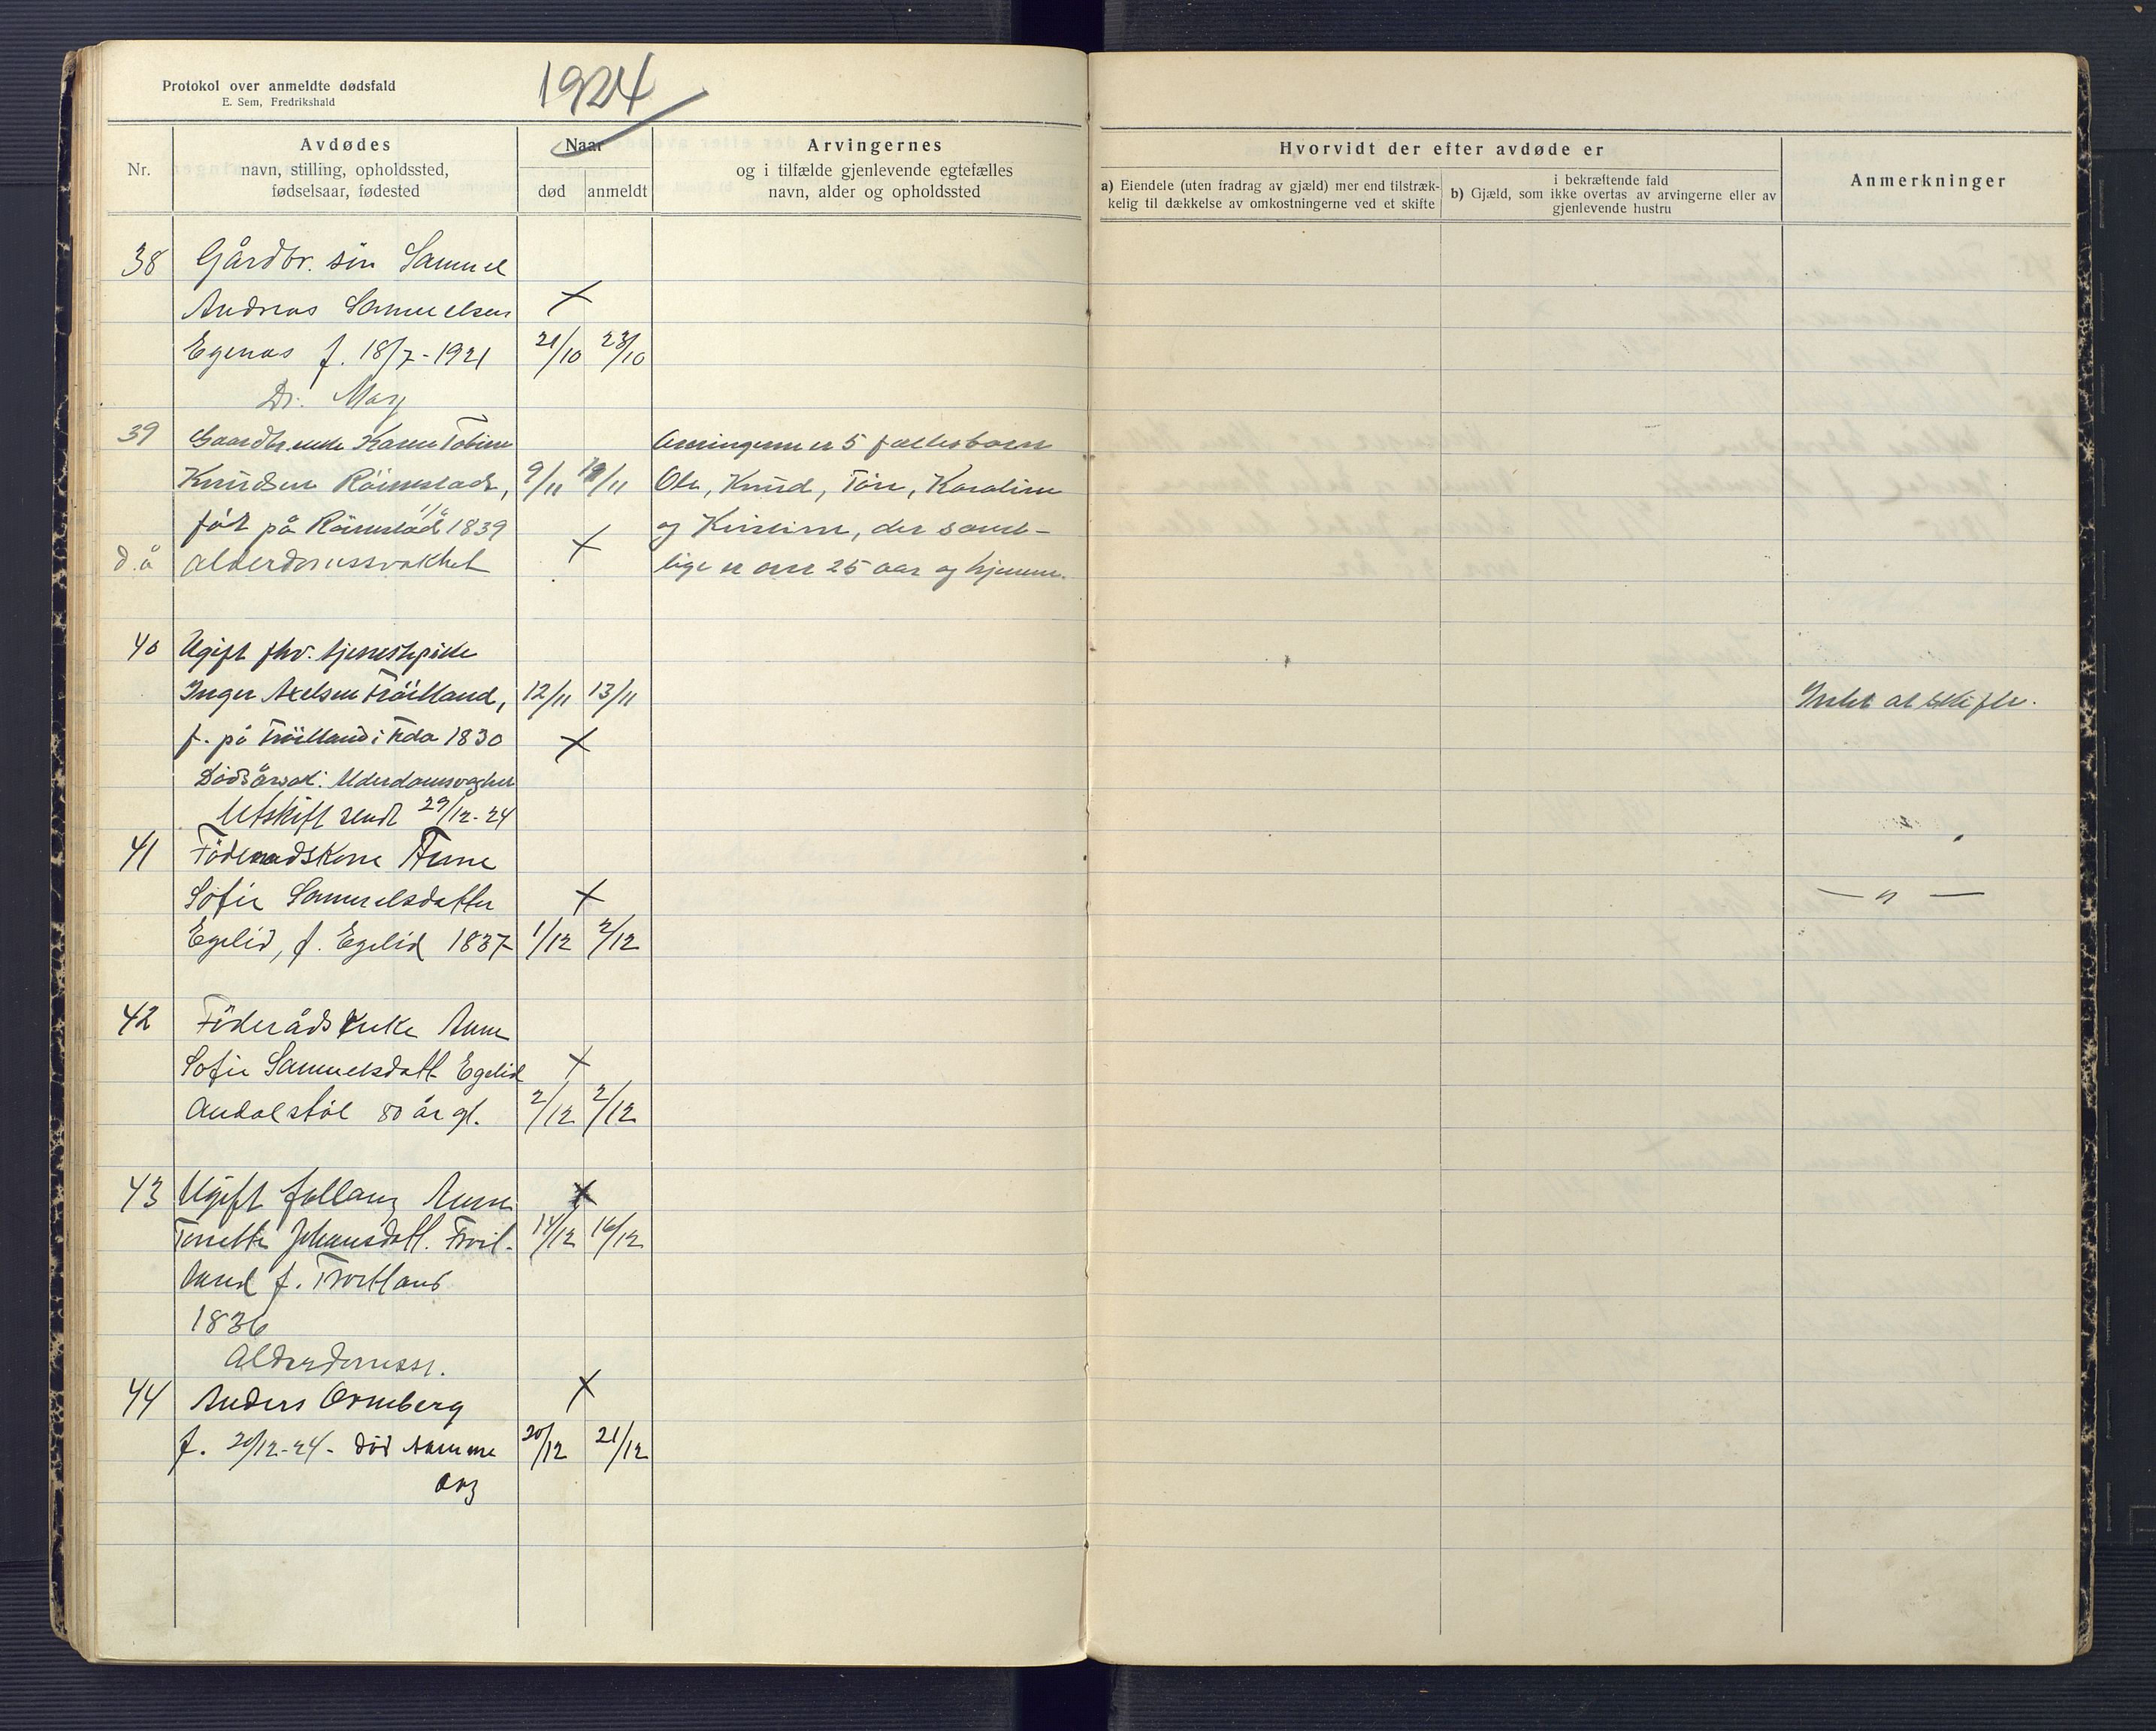 Protokol over anmeldte dødsfald
E. Sem, Fredrikshald
1924
Nr.
Avdødes
navn, stilling, opholdssted,
fødselsaar, fødested
Naar
død
anmeldt
Arvingernes
og i tilfælde gjenlevende egtefælles
navn, alder og opholdssted
Hvorvidt der efter avdøde er
a) Eiendele (uten fradrag av gjæld) mer end tilstræk-
kelig til dækkelse av omkostningerne ved et skifte
i bekræftende fald
b) Gjæld, som ikke overtas av arvingerne eller av
gjenlevende hustru
Anmerkninger
38 Gårdbr. sön Samuel
Andreas Samuelsen
Egenas f. 18/7-1921 21/10 23/10
Dr.
39 Gaardbr.enke Karen Tobine Arvingerne er 5 fællesbarn
Knudsen Röinestad, 9/11 /11 Ole, Knud, Töre, Karoline
föt på Röinestad 1839 og Kristine, der samt-
d.å alderdomssvakhet lige er over 25 aar og hjemme.
40 Ugift fhv. tjenestepike
Inger Axelsen Tröilland, 12/11 13/11 Intet at skifte.
f. på Tröilland i Feda 1830
Dödsårsak: Alderdomssvaghet
Utskift sendt 29/12-24
41 Föderaadskone Anne
Sofie Samuelsdatter — " —
Egelid, f. Egelid 1837 1/12 2/12
42 Föderådsenke Anne
Sofie Samuelsdatt. Egelid
Andalstöl 80 år gl. 2/12 2/12
43 Ugift fattiglem Anne
Tonette Johansdatt. Tröil- 14/12 16/12
land f. Tröilland
1836
Alderdomssv.
44 Anders Ormberg
f. 20/12-24- död samme 20/12 21/12
dag